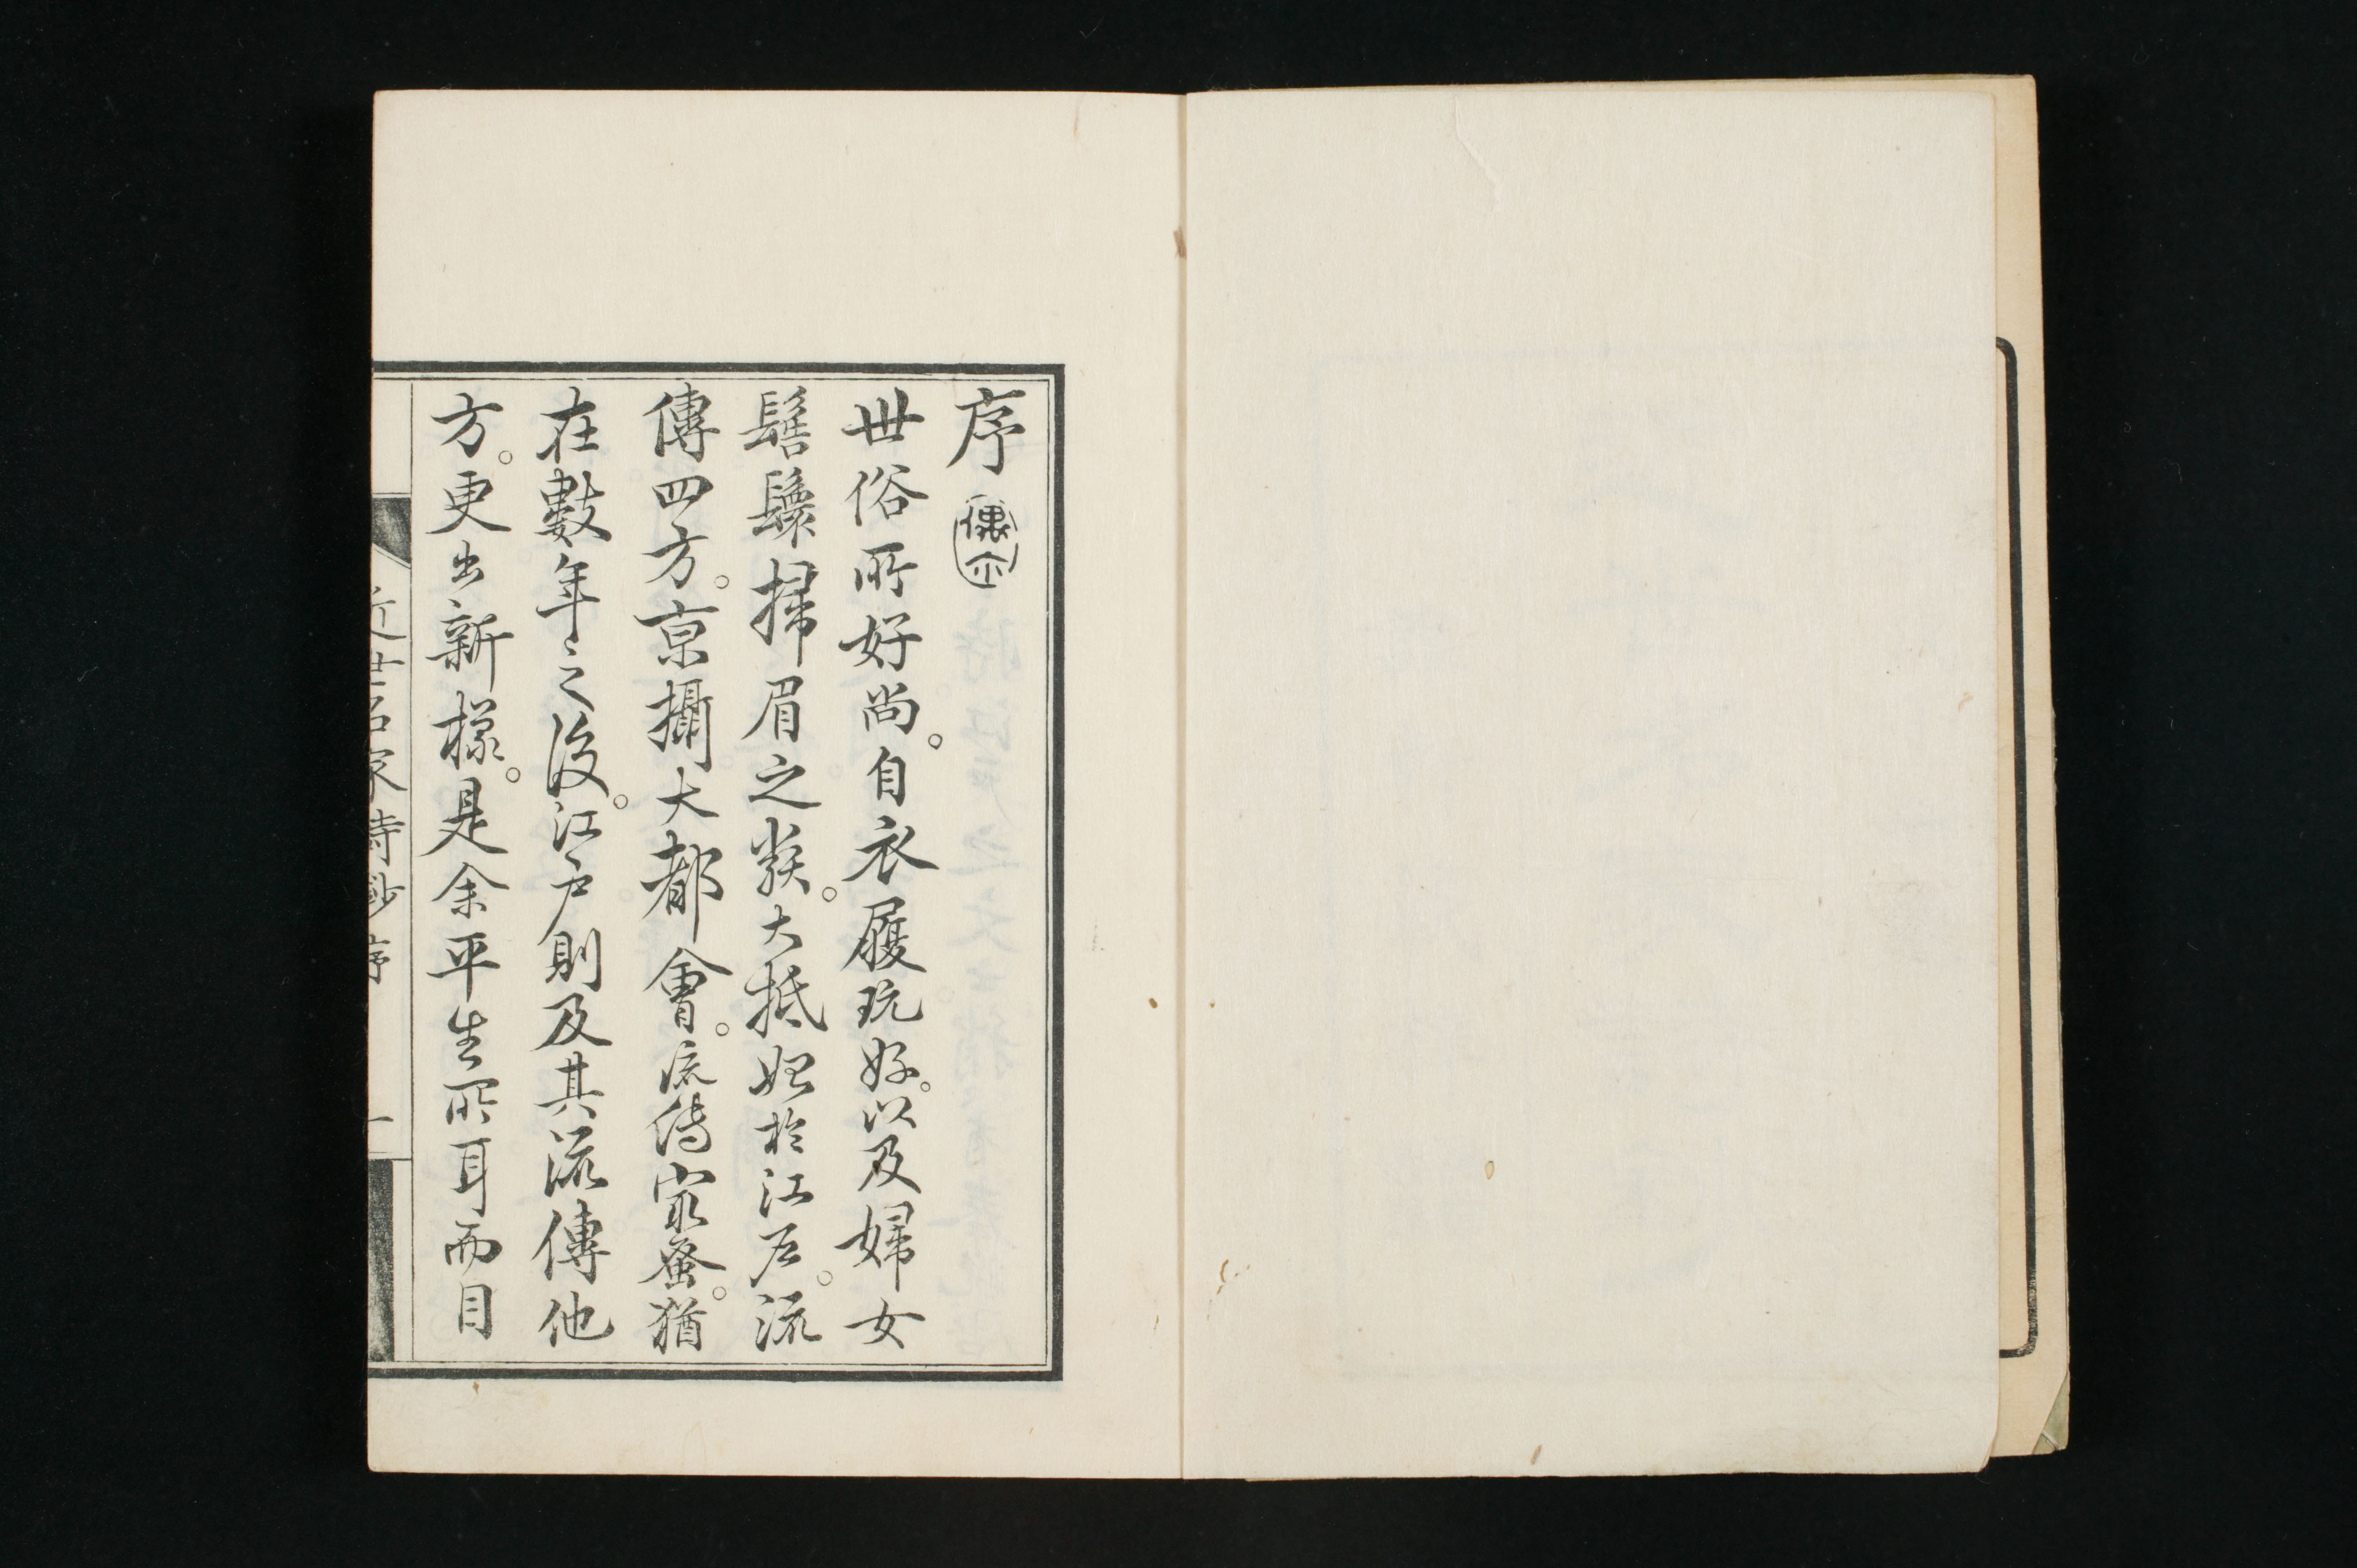 序
偶尒
世俗所好尚。自衣履玩好。以及婦女
髻鬟掃眉之類。大抵始於江戶。流
傳四方。京攝大都會。流傳㝡蚤。猶
在數年之後。江戶則及其流傳他
方。更出新樣。是余平生所耳而目
近世名家詩鈔 序 一